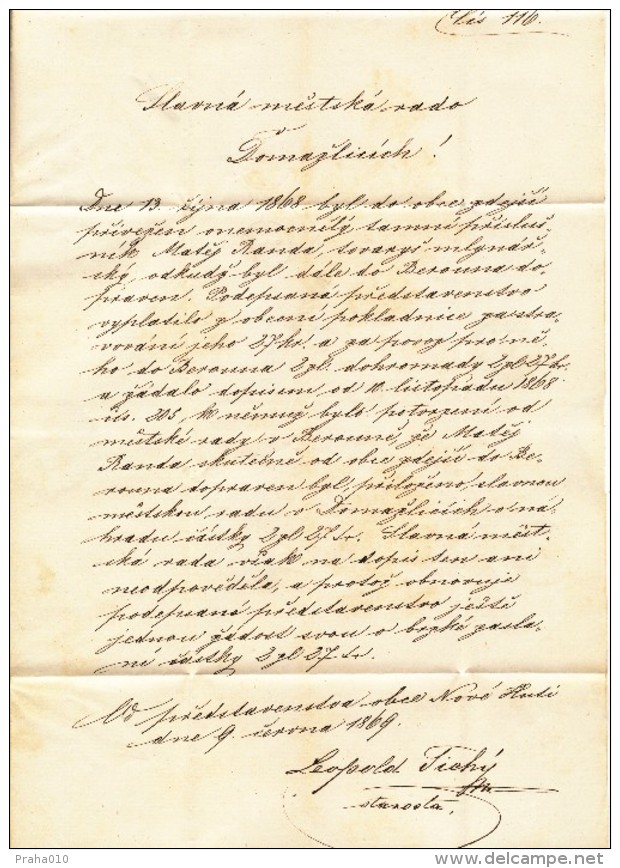 Čís 116.
Slavná městská rado
v
Domažlicích!
Dne 13. října 1868 byl do obce zdejší
přivezen onemocnělý tamní přísluš-
ník Matěj Randa, tovaryš mlynář-
ský, odkudž byl dále do Berouna do-
praven. Podepsané představenstvo
vyplatilo z obecní pokladnice za stra-
vování jeho 27 kr. a za povoz pro ně-
ho do Berouna 2 zl. dohromady 2 zl 27 kr.
a žádalo dopisem od 10. listopadu 1868
čís. 205, k němuž bylo potvrzení od
městské rady v Berouně, že Matěj
Randa skutečně od obce zdejší do Be-
rouna dopraven byl, přiloženo, slavnou
městskou radu v Domažlicích o ná-
hradu částky 2 zl 27 kr. Slavná měst-
ská rada však na dopis ten ani
neodpověděla, a protož obnovuje
podepsané představenstvo ještě
jednou žádost svou o brzké zaslá-
ní částky 2 zl 27 kr.
Od představenstva obce Nové Huti
dne 9. června 1869.
Leopold Tichý
starosta.
Praha010
delcampe.net